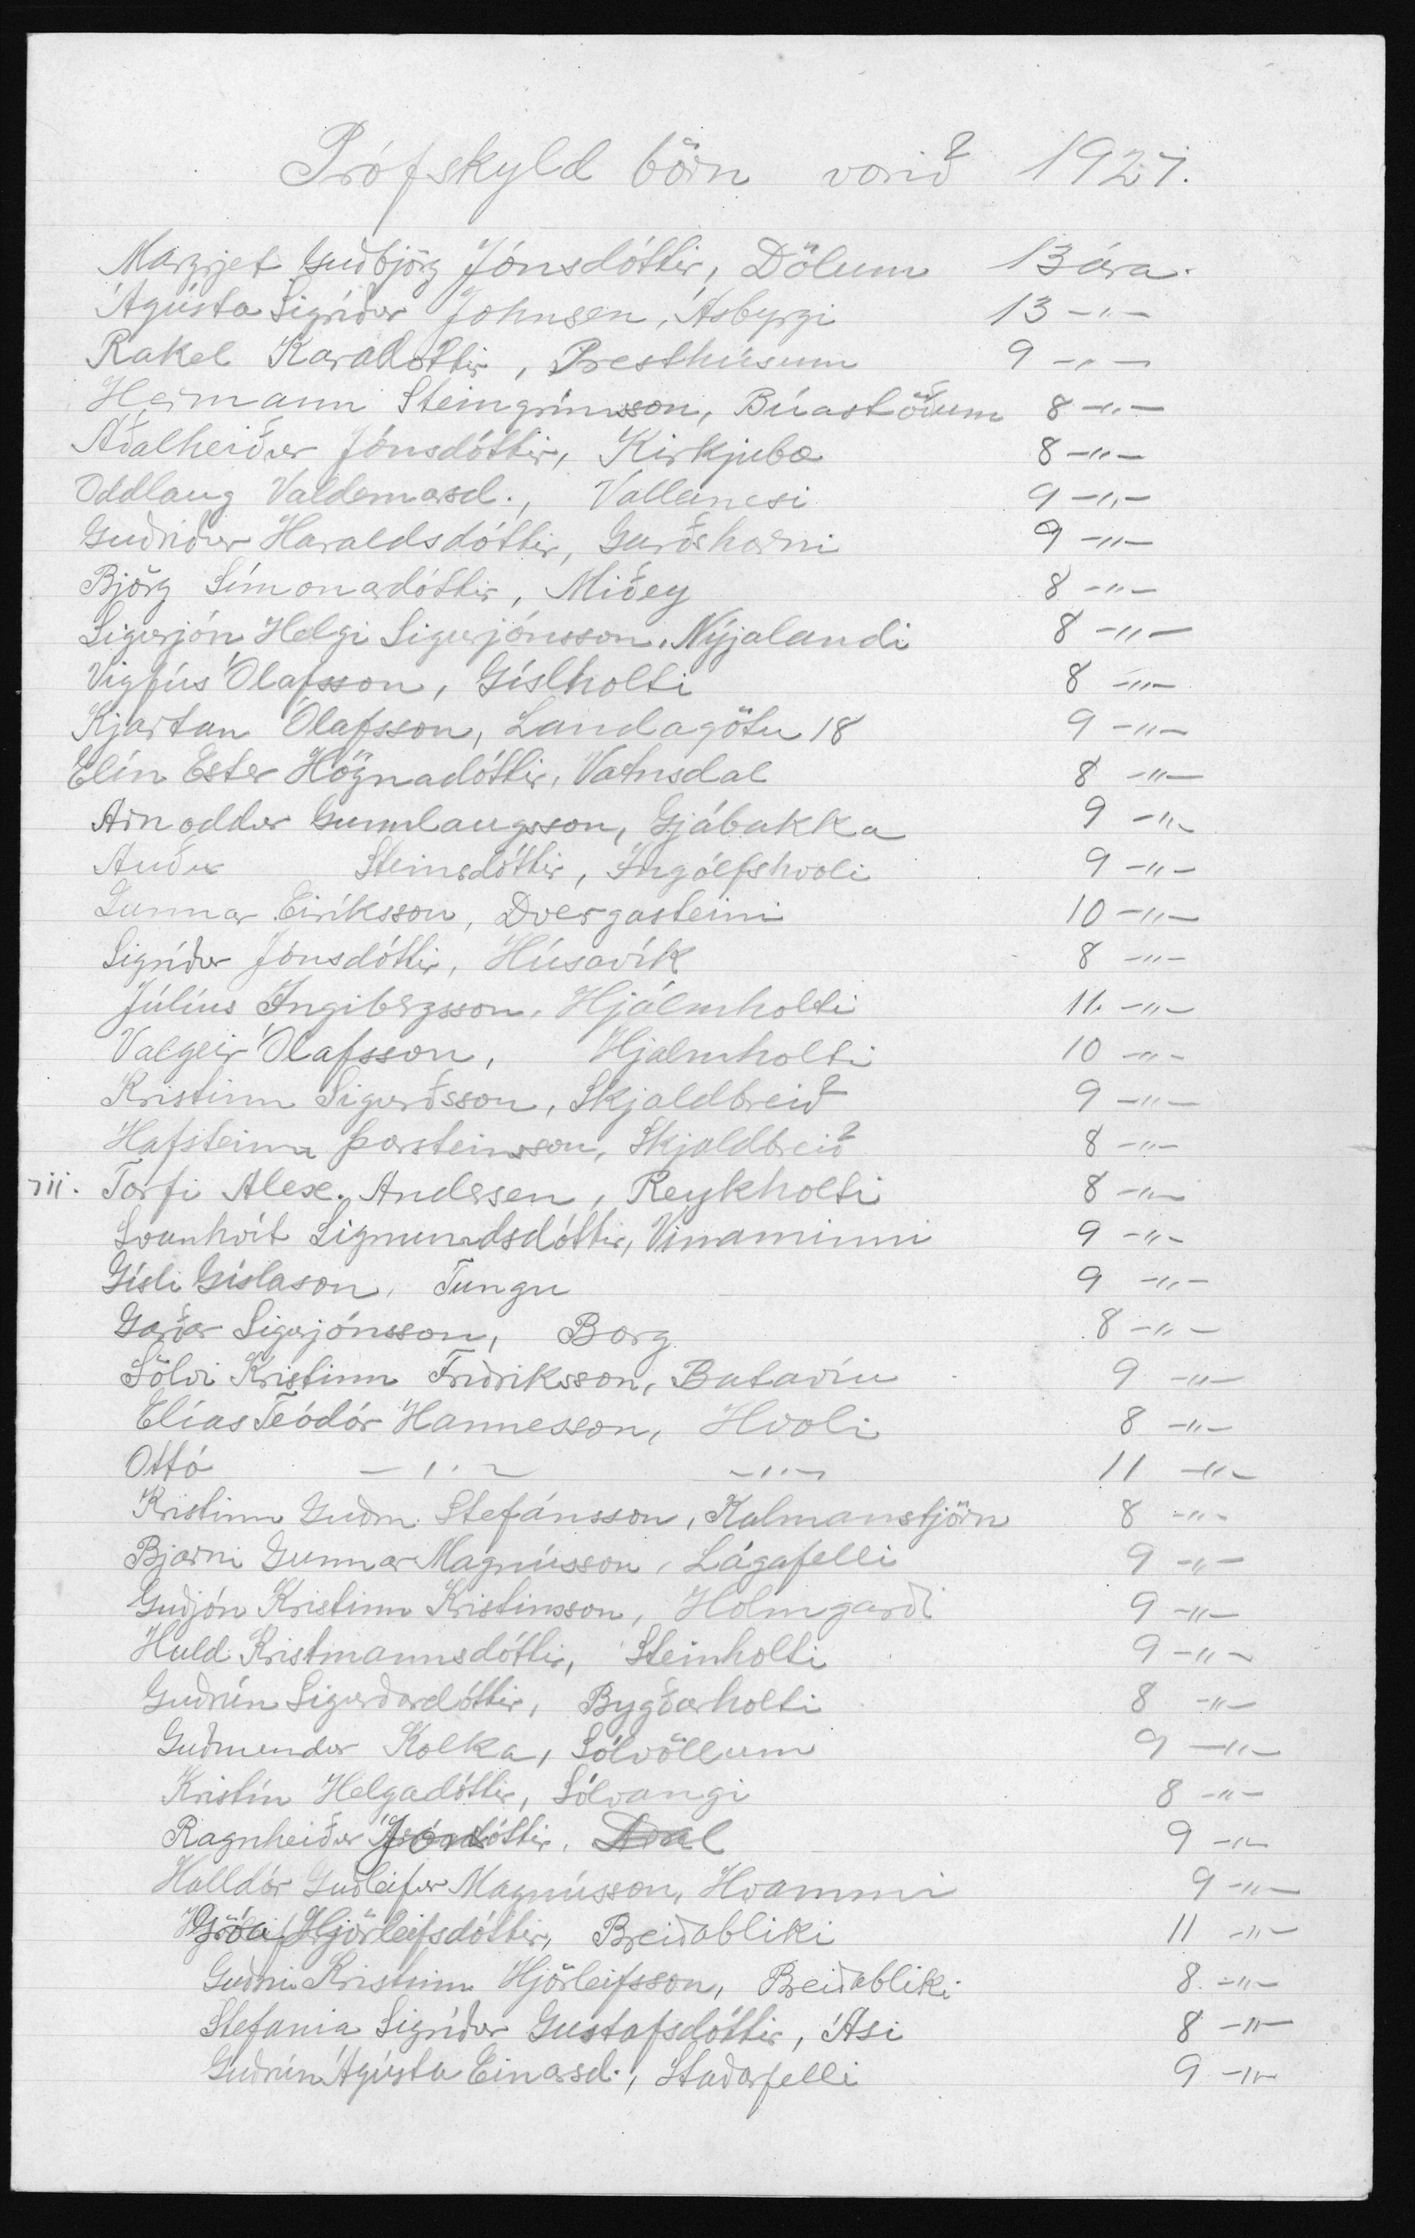 Prófskyld börn vorið 1927.
Margrjet Guðbjörg Jónsdóttir, Dölum 13 ára.
Ágústa Sigríður Johnsen, Ásbyrgi 13 -"-
Rakel Káradóttir, Presthúsum 9 -"-
Hermann Steingrímsson, Búastöðum 8 -"-
Aðalheiður Jónsdóttir, Kirkjubæ 8 -"-
Oddlaug Valdemarsd., Vallanesi 9 -"-
Guðríður Haraldsdóttir, Garðshorni 9 -"-
Björg Símonardóttir, Miðey 8 -"-
Sigurjón Helgi Sigurjónsson, Nýjalandi 8 -"-
Vigfús Ólafsson, Gíslholti 8 -"-
Kjartan Ólafsson, Landagötu 18 9 -"-
Elín Ester Högnadóttir, Vatnsdal 8 -"-
Arnoddur Gunnlaugsson, Gjábakka 9 -"-
Auður Steinsdóttir, Ingólfshvoli 9 -"-
Gunnar Eiríksson, Dvergasteini 10 -"-
Sigríður Jónsdóttir, Húsavík 8 -"-
Júlíus Ingibergsson, Hjálmholti 11 -"-
Valgeir Ólafsson, Hjálmholti 10 -"-
Kristinn Sigurðsson, Skjaldbreið 9 -"-
Hafsteinn Þorsteinsson, Skjaldbreið 8 -"-
Torfi Alex. Andersen, Reykholti 8 -"-
Svanhvít Sigmundsdóttir, Vinaminni 9 -"-
Gísli Gíslason, Tungu 9 -"-
Garðar Sigurjónsson, Borg 8 -"-
Sölvi Kristinn Friðriksson, Batavíu 9 -"-
Elías Teódór Hannesson, Hvoli 8 -"-
Ottó -"- -"- 11 -"-
Kristinn Guðm. Stefánsson, Kalmanstjörn 8 -"-
Bjarni Gunnar Magnússon, Lágafelli 9 -"-
Guðjón Kristinn Kristinsson, Hólmgarði 9 -"-
Huld Kristmannsdóttir, Steinholti 9 -"-
Guðrún Sigurðardóttir, Bygðarholti 8 -"-
Guðmundur Kolka, Sólvöllum 9 -"-
Kristín Helgadóttir, Sólvangi 8 -"-
Ragnheiður Jónsdóttir, 9 -"-
Halldór Guðleifur Magnússon, Hvammi 9 -"-
Gróa Hjörleifsdóttir, Breiðabliki 11 -"-
Guðni Kristinn Hjörleifsson, Breiðabliki 8 -"-
Stefanía Sigríður Gustafsdóttir, Ási 8 -"-
Guðrún Ágústa Einarsd., Staðarfelli 9 -"-